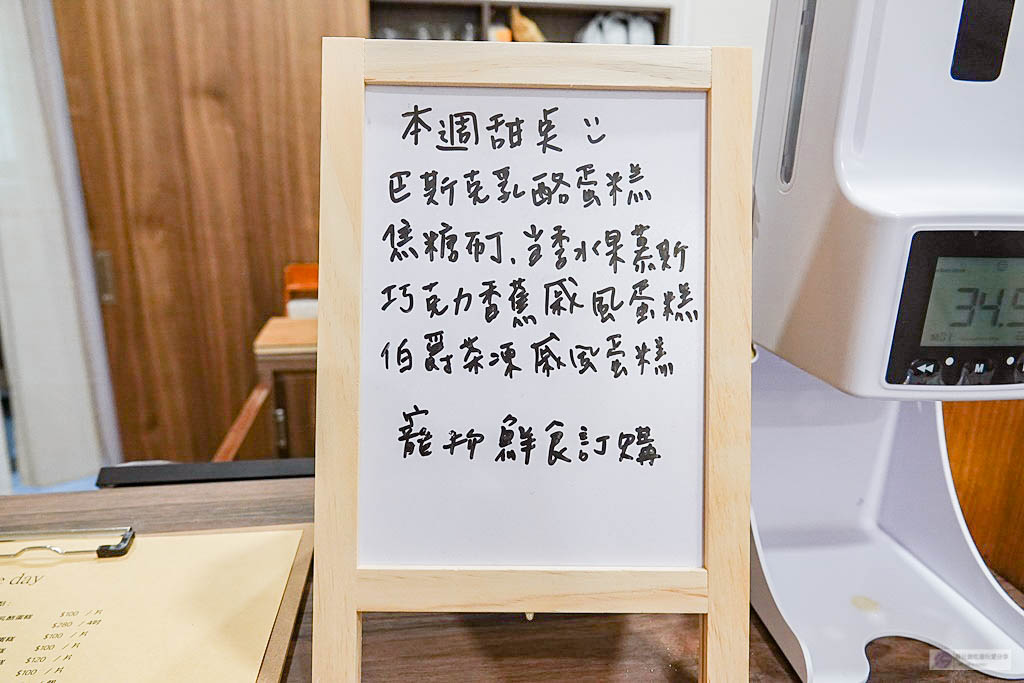 本週甜点 :)
巴斯克乳酪蛋糕
焦糖布丁、当季水果慕斯
巧克力香蕉戚風蛋糕
伯爵茶凍戚風蛋糕
寵物鮮食訂購
34.5
M
day
$100 /片
$280 /4吋
$100 /片
$120 /片
$100 /片